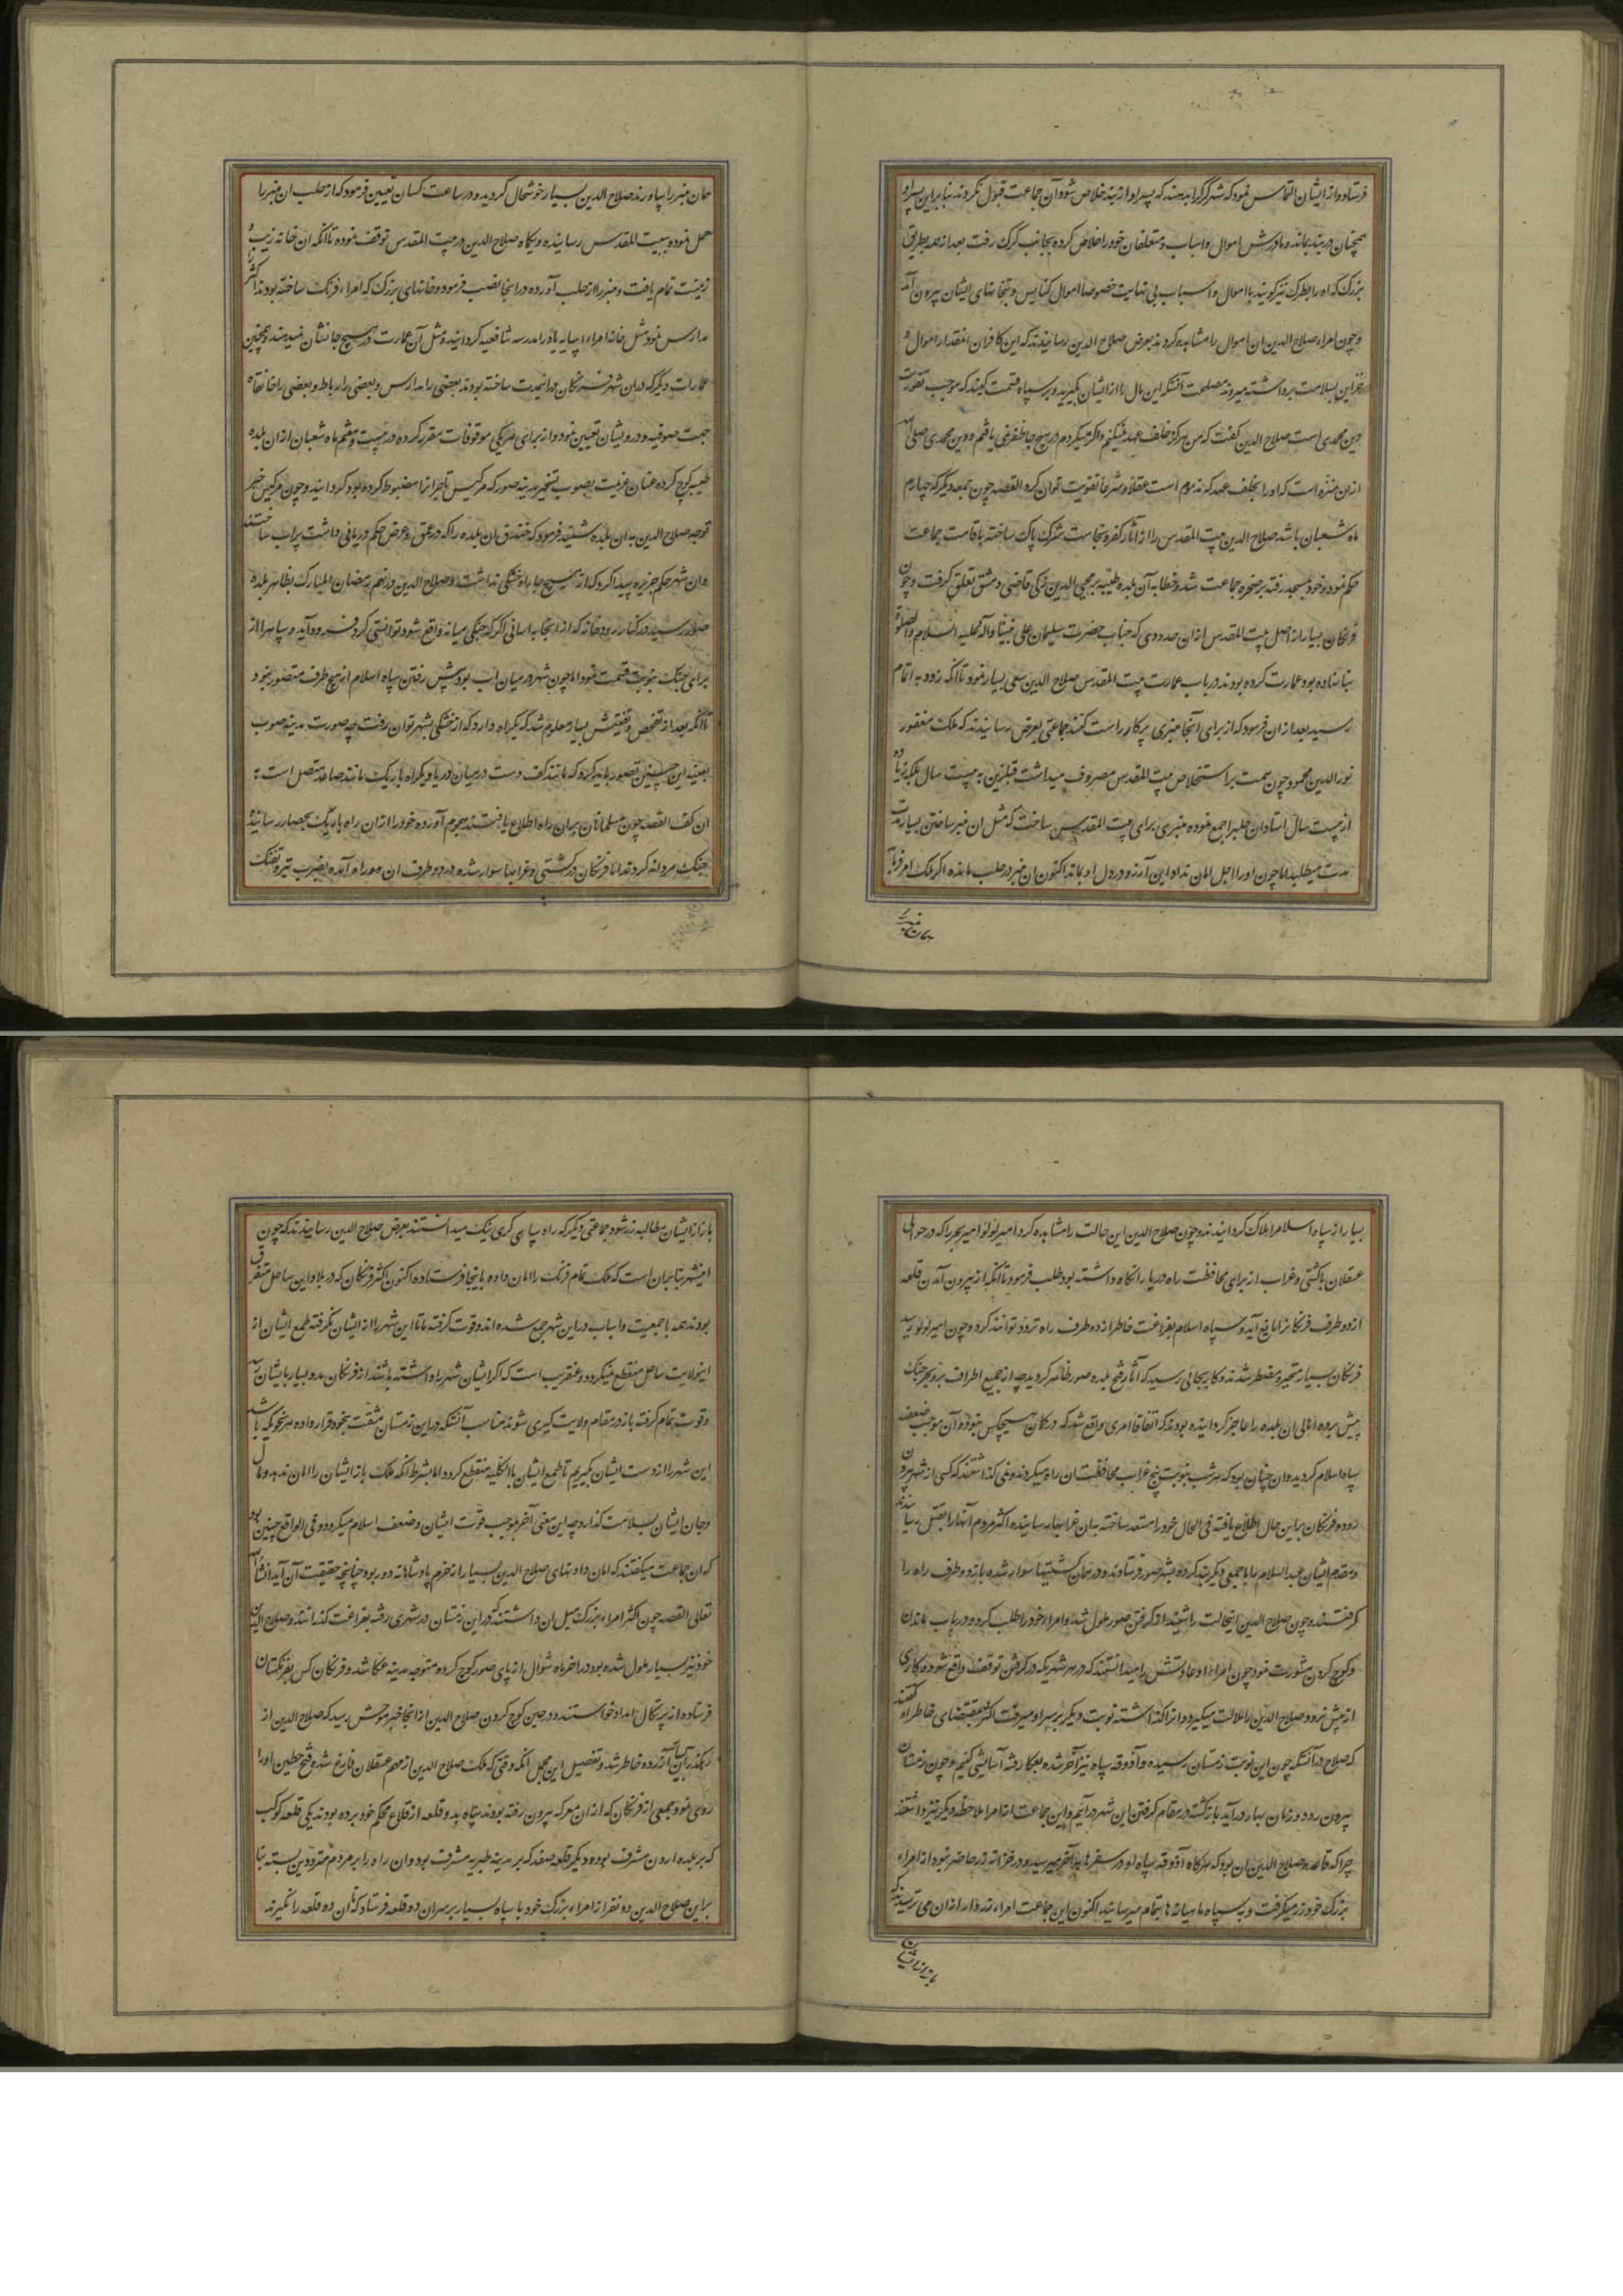 فرستاد و از ایشان التماس نمود که شهر کرک را بدهند که پسر او از بند خلاص شود و آن جماعت قبول نکردند بنا براین پسر او
همچنان در بند بماند و مادرش اموال و اسباب و متعلقان خود را خلاص کرده بجانب کرک رفت بعد از همه بطریق
بزرک که او را بطرک نیز کویند با اموال و اسباب بی نهایت خصوصا اموال کنایس و بتخانهای ایشان بیرون آمد
و چون امراء صلاح الدین ان اموال را مشاهده کردند بعرض صلاح الدین رسانیدند که این کافران اینقدار اموال و
خزاین بسلامت برداشته میروند مصلحت آنستکه این مال را از ایشان بکیرید و بر سپاه قسمت کنید که موجب تقویت
دین محمدی است صلاح الدین کفت که من هرکز خلف عهد نمیکنم و اکر میکردم در هیچ جا ظفر نمی یافتم و دین محمدی صلی الله
ازان منزه است که او را بخلف عهد که مذموم است عقلا و شرعا تقویت توان کرد القصه چون جمعه دیکر که چهارم
ماه شعبان باشد صلاح الدین بیت المقدس را از آثار کفر و نجاست شرک پاک ساخته باقامت جماعت
حکم نمود و خود بمسجد رفته بر صخره جماعت شد و خطابه آن بلده طیبه بر محیی الدین زکی قاضی دمشق تعلق کرفت و چون
فرنکان بسیار از اصل بیت المقدس ازان حدودی که جناب حضرت سلیمان علی نبینا و آله و علیه السلام و الصلوة
بنا نهاده بود عمارت کرده بودند در باب عمارت بیت المقدس صلاح الدین سعی بسیار نمود تا آنکه زود به اتمام
رسید بعد ازان فرمود که از برای آنجا منبری پرکار راست کنند جماعتی بعرض رسانیدند که ملک مغفور
نور الدین محمود چون همت بر استخلاص بیت المقدس مصروف میداشت قبل ازین به بیست سال بلکه زیاده
از بیست سال استادان حلب را جمع نموده منبری برای بیت المقدس ساخت که مثل ان منبر ساختن بسیار مدت
مدت میطلبد اما چون او را اجل امان نداد این آرزو در دل او بماند اکنون ان منبر در حلب مانده اکر ملک امر فرماید
همان منبر را
همان منبر را بیاورند صلاح الدین بسیار خوشحال کردید و در ساعت کسان تعیین فرمود که از حلب ان منبر را
حمل نموده ببیت المقدس رسانیدند و یکماه صلاح الدین در بیت المقدس توقف نموده تا آنکه ان خانه زیب و
زینت تمام یافت و منبر را از حلب آورده در انجا نصب فرمود و خانهای بزرک که امراء فرنک ساخته بودند اکثر را
مدارس نمود مثل خانه امراء اسپارید را مدرسه شافعیه کردانید و مثل آن عمارت در هیچ جا نشان نمیدهند و همچنین
عمارات دیکر که دران شهر فرنکان در این مدت ساخته بودند بعضی را مدارس و بعضی را رباط و بعضی را خانقاه
جهت صوفیه و درویشان تعیین نمود و از برای هر یکی موقوفات مقرر کرده در بیست و پنجم ماه شعبان ازان بلده
طیبه کوچ کرده عنان عزیمت بصوب تسخیر مدینه صور که مرکیس تاجر انرا مضبوط کرده بود کردانید و چون مرکیس خبر
توجه صلاح الدین به ان بلده شنید فرمود که خندق ان بلده را که در عمق و عرض حکم دریائی داشت پر اب ساختند
و ان شهر حکم جزیره پیدا کرد که از هیچ جا راه خشکی نداشت و صلاح الدین در نهم رمضان المبارک بظاهر بلده
صور رسید در کنار رودخانه که از انجا به اسانی اکر که جنکی میانه واقع شود توانستی کرد فرود آید و سپاه را از
برای جنک بنوبت قسمت نمود اما چون شهر در میان اب بود پیش رفتن سپاه اسلام از هیچ طرف متصور نبود
تا آنکه بعد از تفحص و تفتیش بسیار معلوم شد که یکراه دارد که از خشکی بشهر توان رفت چه صورت مدینه صور
بعینه این چنین تصور باید کرد که مانند کف دست در میان دریا و یکراه باریک مانند ساعد متصل است به
ان کف القصه چون مسلمانان بران راه اطلاع یافتند هجوم آورده خود را ازان راه باریک بحصار رسانیدند
جنک مردانه کردند اما فرنکان در کشتی و غرابها سوار شده در دو طرف ان راه آمده بضرب تیر و تفنک
بسیار از سپاه اسلام را هلاک کردانیدند و چون صلاح الدین این حالت را مشاهده کرد امیر لولو امیر بحر را که در حوالی
عسقلان با کشتی و غراب از برای محافظت راه دریا را نکاه داشته بود طلب فرمود تا آنکه از بیرون آمدن قلعه
از دو طرف فرنکانرا مانع آید و سپاه اسلام بفراغت خاطر از دو طرف راه تردد توانند کرد و چون امیر لولو رسید
فرنکان بسیار متحیر و مضطر شدند و کار بجائی رسید که آثار فتح بلده صور ظاهر کردید چه از جمیع اطراف بر و بحر جنک
پیش برده اهالی ان بلده را عاجز کردانیده بودند که اتفاقا امری واقع شد که در کمان هیچکس نبود و آن موجب ضعف
سپاه اسلام کردید و ان چنان بود که هر شب بنوبت پنج غراب محافظت ان راه میکردند و نمی کذاشتند که کسی از شهر بیرون
رود و فرنکان براین حال اطلاع یافته فی الحال خود را مستعد ساخته به ان غرابها رسانیده اکثر مردم آنها را بقتل رسانیدند
و مقدم ایشان عبد السلام را با جمعی دیکر بند کرده بشهر صور فرستادند و در همان کشتیها سوار شده باز دو طرف راه را
کرفتند و چون صلاح الدین اینحالت را شنید از کرفتن صور ملول شد و امراء خود را طلب کرد و در باب ماندن
و کوچ کردن مشورت نمود چون امراء او عادتش را میدانستند که در هر شهریکه در کرفتن توقف واقع شود و کاری
از پیش نرود صلاح الدین را ملالت میکیرد و انرا کذاشته نوبت دیکر بر سر او میرفت اکثر بمقتضای خاطر او کفتند
که صلاح در آنستکه چون این نوبت زمستان رسیده و آذوقه سپاه نیز آخر شده بعکا رفته آسایشی کنیم و چون زمستان
بیرون رود و زمان بهار در آید باز کشته در مقام کرفتن این شهر در آئیم و این جماعت از امرا ملاحظه دیکر نیز داشتند
چرا که قاعده صلاح الدین ان بود که هرکاه آذوقه سپاه او در سفرها به آخر میرسید و در خزانه زر حاضر نبود از امراء
بزرک خود زر میکرفت و به سپاه ماهیانه ها بتمام میرسانید اکنون این جماعت امراء زردار ازان می ترسیدند که
باز از ایشان
باز از ایشان مطالبه زر شود جماعتی دیکر که راه سپاهی کری نیک میدانستند بعرض صلاح الدین رسانیدند که چون
اینشهر بنا بران است که ملک تمام فرنک را امان داده باینجا فرستاده اکنون اکثر فرنکان که در بلاد این ساحل متفرق
بودند همه با جمعیت و اسباب در این شهر جمع شده اند و قوت کرفته ما تا این شهر را از ایشان نکرفته طمع ایشان از
اینولایت ساحل منقطع نمیکردد و عنقریب است که اکر ایشان شهر را داشته باشند از فرنکان مدد بسیار بایشان رسد
و قوت تمام کرفته باز در مقام ولایت کیری شوند مناسب آنستکه در این زمستان مشقت بخود قرار داده بهر نحویکه باشد
این شهر را از دست ایشان بکیریم تا طمع ایشان بالکلیه منقطع کردد اما بشرط انکه ملک باز ایشان را امان ندهد و مال
و جان ایشان بسلامت نکذارد چه این معنی آخر موجب قوت ایشان و ضعف اسلام میکردد و فی الواقع چنین بود
که ان جماعت میکفتند که امان دادنهای صلاح الدین بسیار از حزم پادشاهانه دور بود چنانچه حقیقت آن آید انشاء الله
تعالی القصه چون اکثر امراء بزرک میل ان داشتند که در این زمستان در شهری رفته بفراغت کذرانند و صلاح الدین
خود نیز بسیار ملول شده بود در اخر ماه شوال از پای صور کوچ کرده متوجه مدینه عکا شد و فرنکان کس بفرنکستان
فرستاده از پرتکال امداد خواستند و در حین کوچ کردن صلاح الدین از انجا خبر موحش رسید که صلاح الدین از
رهکذر آن بسیار آزرده خاطر شد و تفصیل این مجمل انکه وقتی که ملک صلاح الدین از مهم عسقلان فارغ شد و فتح حطین او را
روی نمود جمعی از فرنکان که ازان معرکه بیرون رفته بودند پناه بدو قلعه از قلاع محکم خود برده بودند یکی قلعه کوکب
که بر بلده اردن مشرف بوده و دیکر قلعه صفد که بر مدینه طبریه مشرف بود و ان راه را بر مردم مترددین بسته بنا
براین صلاح الدین دو نفر از امراء بزرک خود با سپاه بسیار بر سر ان دو قلعه فرستاد که تا ان دو قلعه را نکیرند